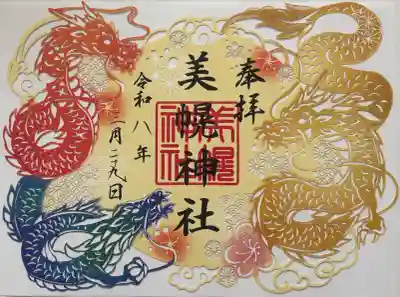 奉拝
美幌神社
美幌
神社
令和八年
月二九日